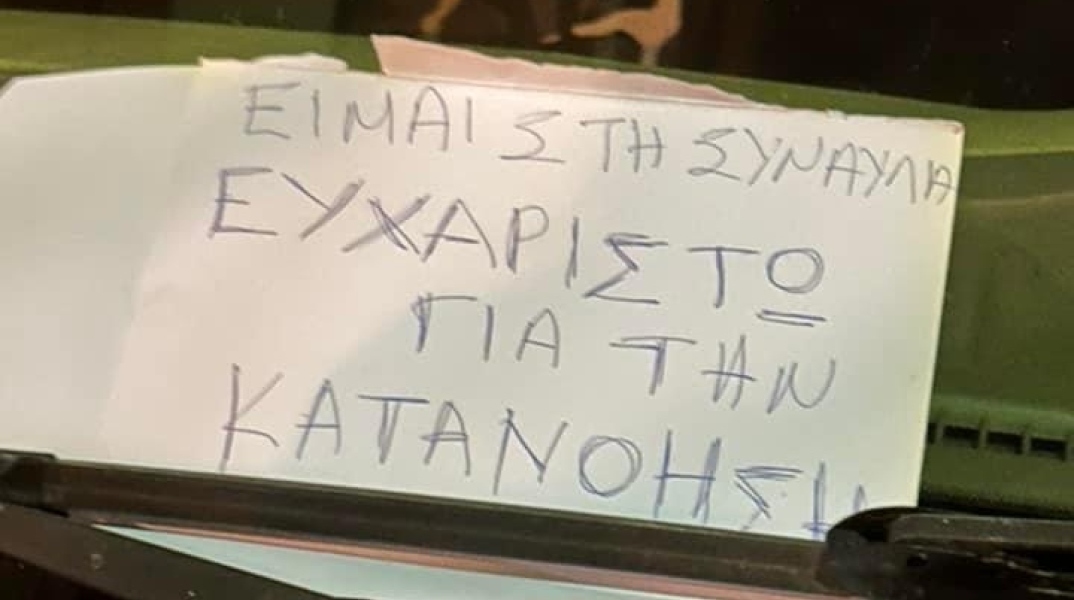 ΕΙΜΑΙ ΣΤΗ ΣΥΝΑΥΛΙΑ
ΕΥΧΑΡΙΣΤΩ
ΓΙΑ ΤΗΝ
ΚΑΤΑΝΟΗΣΗ